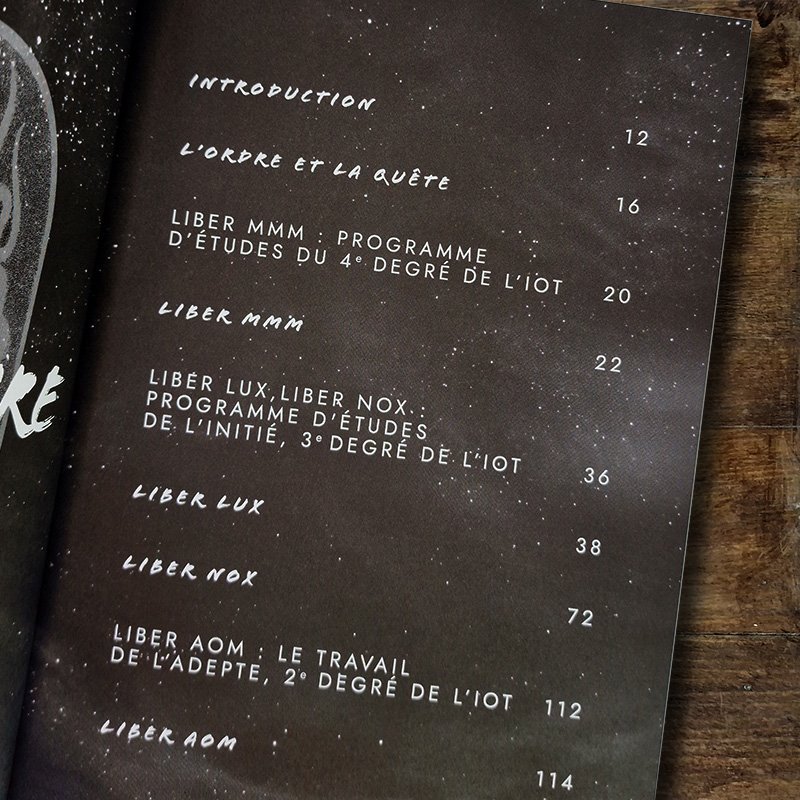 RE
INTRODUCTION
12
L'ORDRE ET LA QUÊTE
16
LIBER MMM : PROGRAMME
D'ÉTUDES DU 4e DEGRÉ DE L'IOT 20
LIBER MMM
22
LIBER LUX, LIBER NOX :
PROGRAMME D'ÉTUDES
DE L'INITIÉ, 3e DEGRÉ DE L'IOT 36
LIBER LUX
38
LIBER NOX
72
LIBER AOM : LE TRAVAIL
DE L'ADEPTE, 2e DEGRÉ DE L'IOT 112
LIBER AOM
114